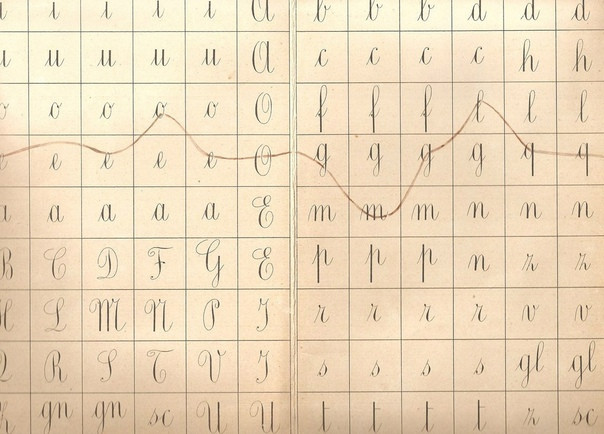 i i i i i a b b b d d d
u u u u u a c c c c h h
o o o o o O f f f l l l
e e e e e O g g g g q q
a a a a a E m m m n n n
B C D F G E p p p n z z
H L M N P I r r r r v v
Q R S T V I s s s s gl gl
h gn gn sc U U t t t t z sc